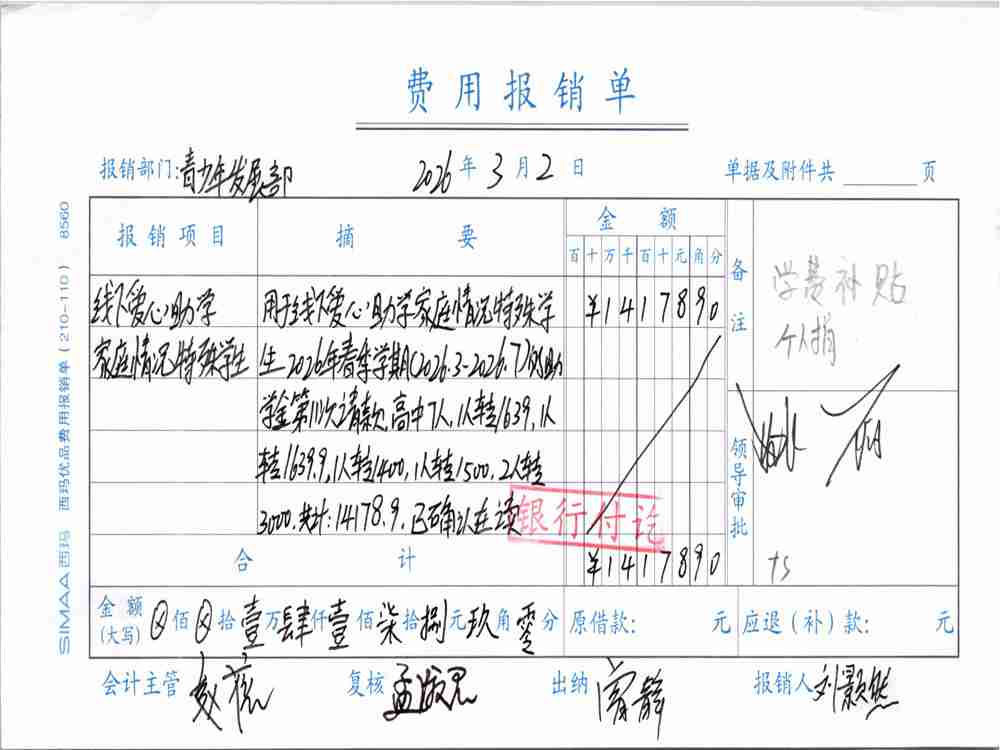 费用报销单
报销部门:青少年发展部 2026年3月2日 单据及附件共 页
报销项目 摘要 金额 备注
百十万千百十元角分
线下爱心助学 用于线下爱心助学家庭情况特殊学 ¥1417890 学费补贴
家庭情况特殊学生 生2026年春季学期(2026.3-2026.7)的助 个人捐
学金第11次请款,高中7人,1人转1639,1人
转1639.9,1人转1400,1人转1500,2人转
3000,共计:14178.9,已确认在读 领导审批
银行付讫
合计 ¥1417890
金额(大写) ⊗佰⊗拾壹万肆仟壹佰柒拾捌元玖角零分 原借款: 元 应退(补)款: 元
会计主管 复核 出纳 报销人 刘颢然
SIMAA 西玛 西玛优品费用报销单(210-110) 8560